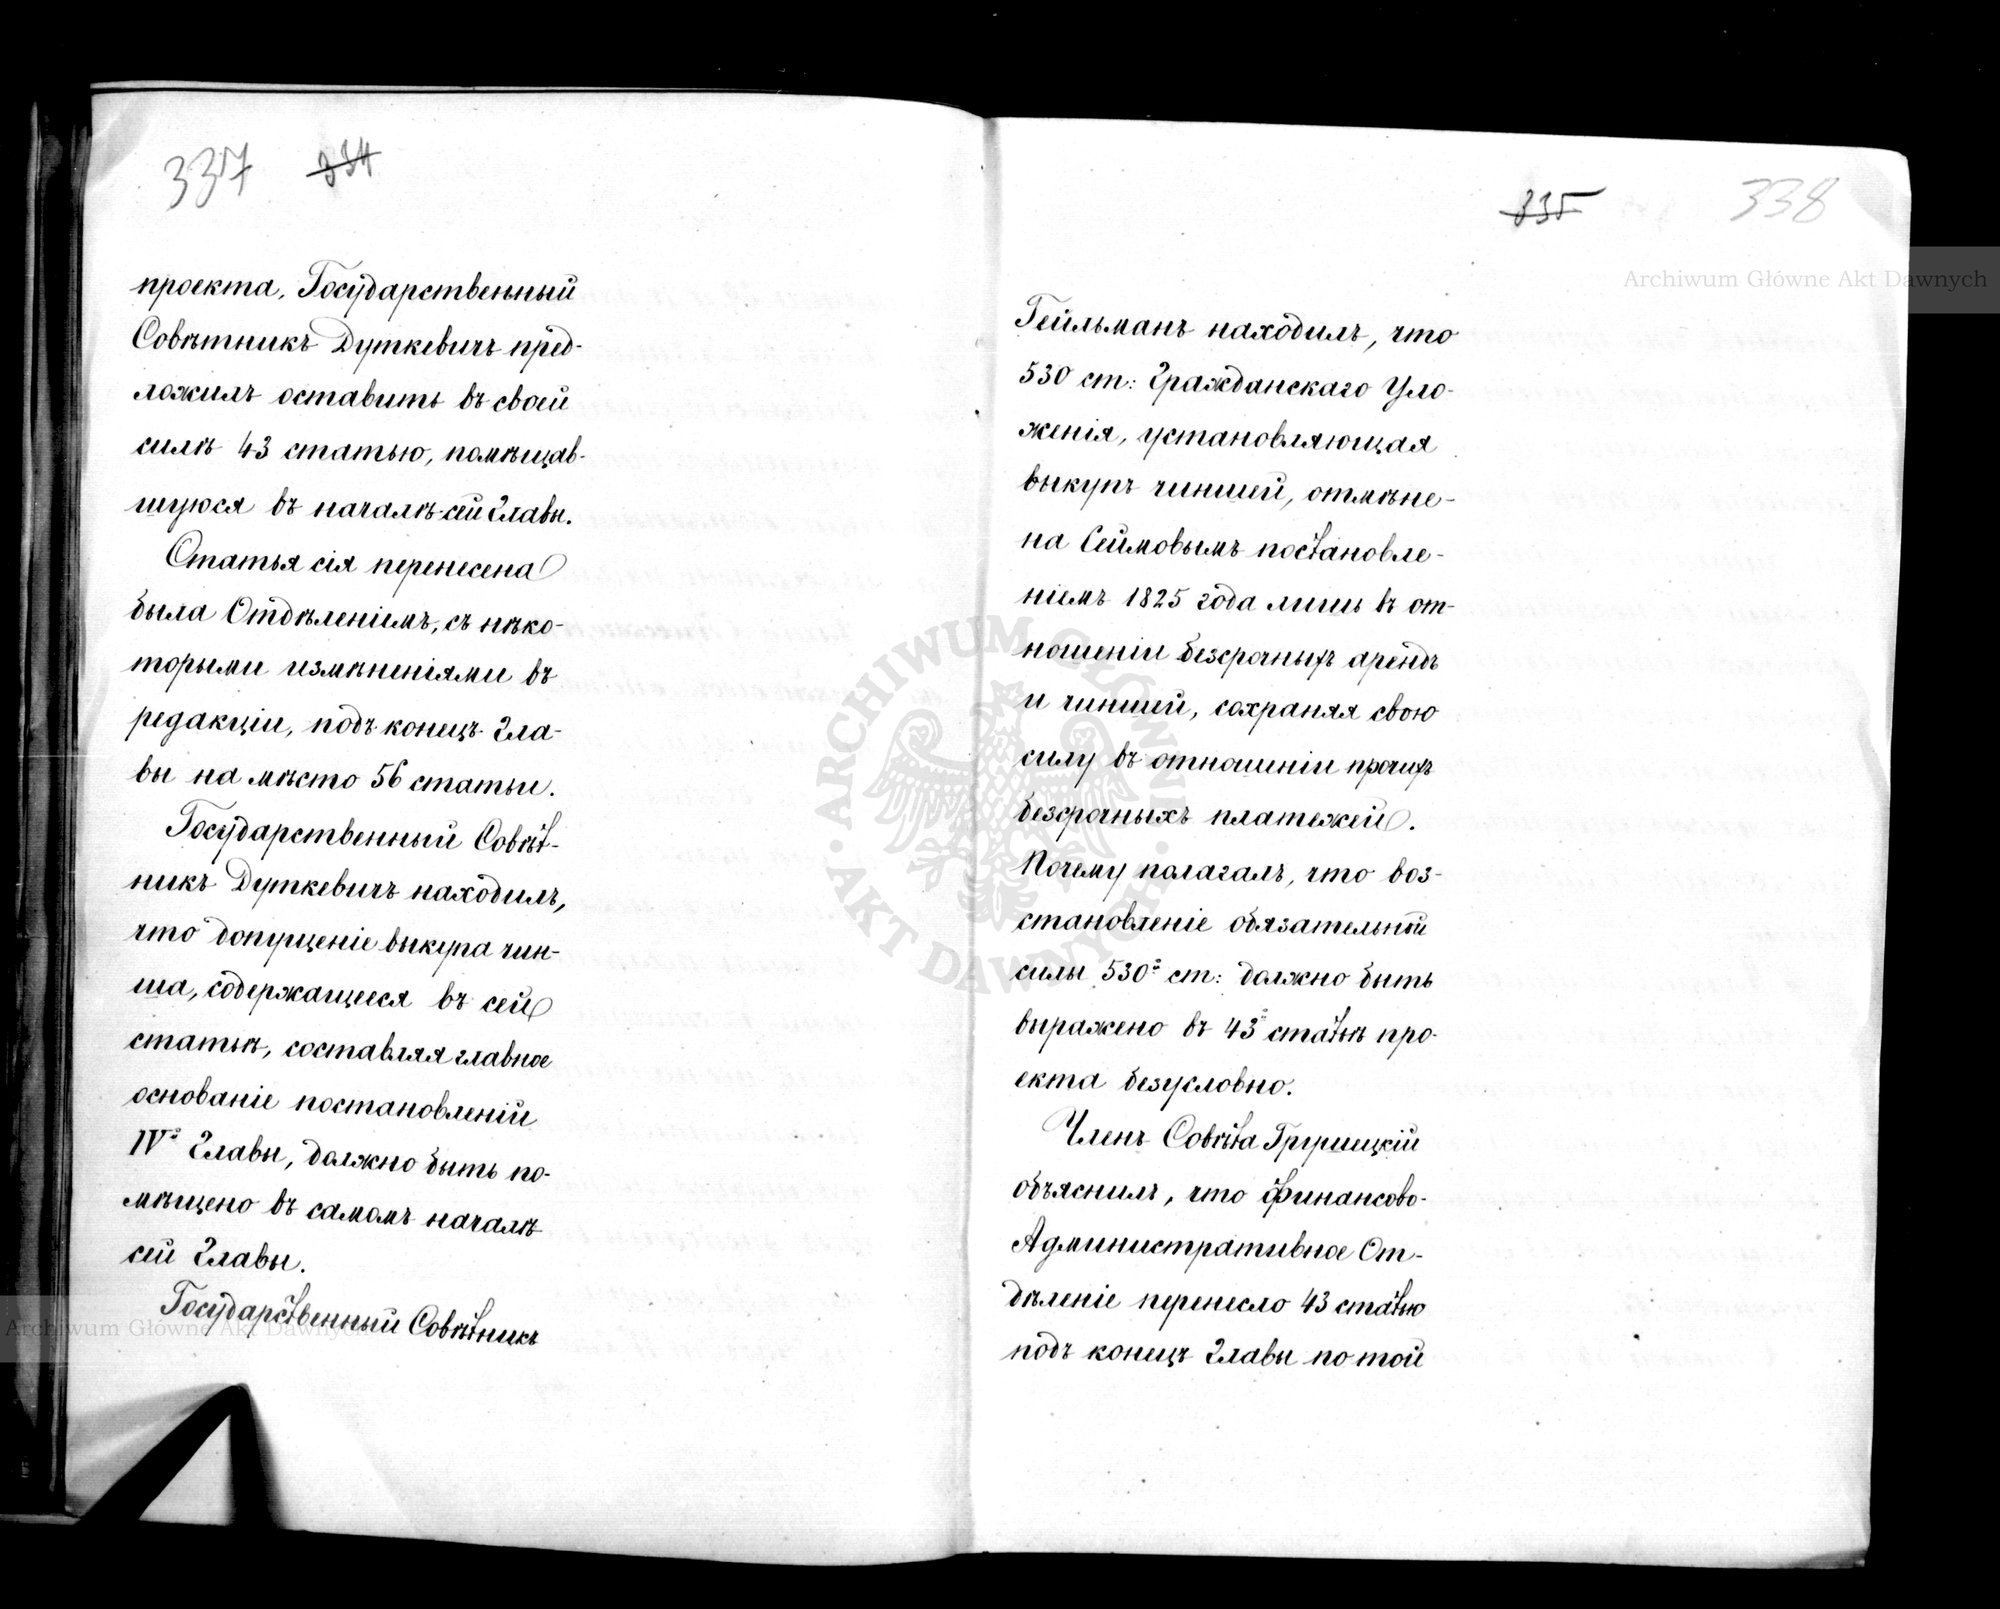 337 334
проекта, Государственный
Совѣтникъ Дуткевичъ пред-
ложилъ оставить въ своей
силѣ 43 статью, помѣщав-
шуюся въ началѣ сей Главы.
Статья сія перенесена
была Отдѣленіемъ, съ нѣко-
торыми измѣненіями въ
редакціи, подъ конецъ Гла-
вы на мѣсто 56 статьи.
Государственный Совѣт-
никъ Дуткевичъ находилъ,
что допущеніе выкупа чин-
ша, содержащееся въ сей
статьѣ, составляя главное
основаніе постановленій
IVй Главы, должно быть по-
мѣщено въ самомъ началѣ
сей Главы.
Государственный Совѣтникъ
335 338
Гейльманъ находилъ, что
530 ст: Гражданскаго Уло-
женія, установляющая
выкупъ чиншей, отмѣне-
на Сеймовымъ постановле-
ніемъ 1825 года лишь въ от-
ношеніи безсрочныхъ арендъ
и чиншей, сохраняя свою
силу въ отношеніи прочихъ
безсрочныхъ платежей.
Почему полагалъ, что воз-
становленіе обязательной
силы 530й ст: должно быть
выражено въ 43й статьѣ про-
екта безусловно.
Членъ Совѣта Грушецкій
объяснилъ, что Финансово-
Административное От-
дѣленіе перенесло 43 статью
подъ конецъ Главы по той
Archiwum Główne Akt Dawnych
Archiwum Główne Akt Dawnych
ARCHIWUM GŁÓWNE · AKT DAWNYCH ·